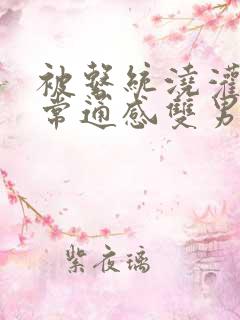 被繫統澆灌
常通感雙男
紫夜璃